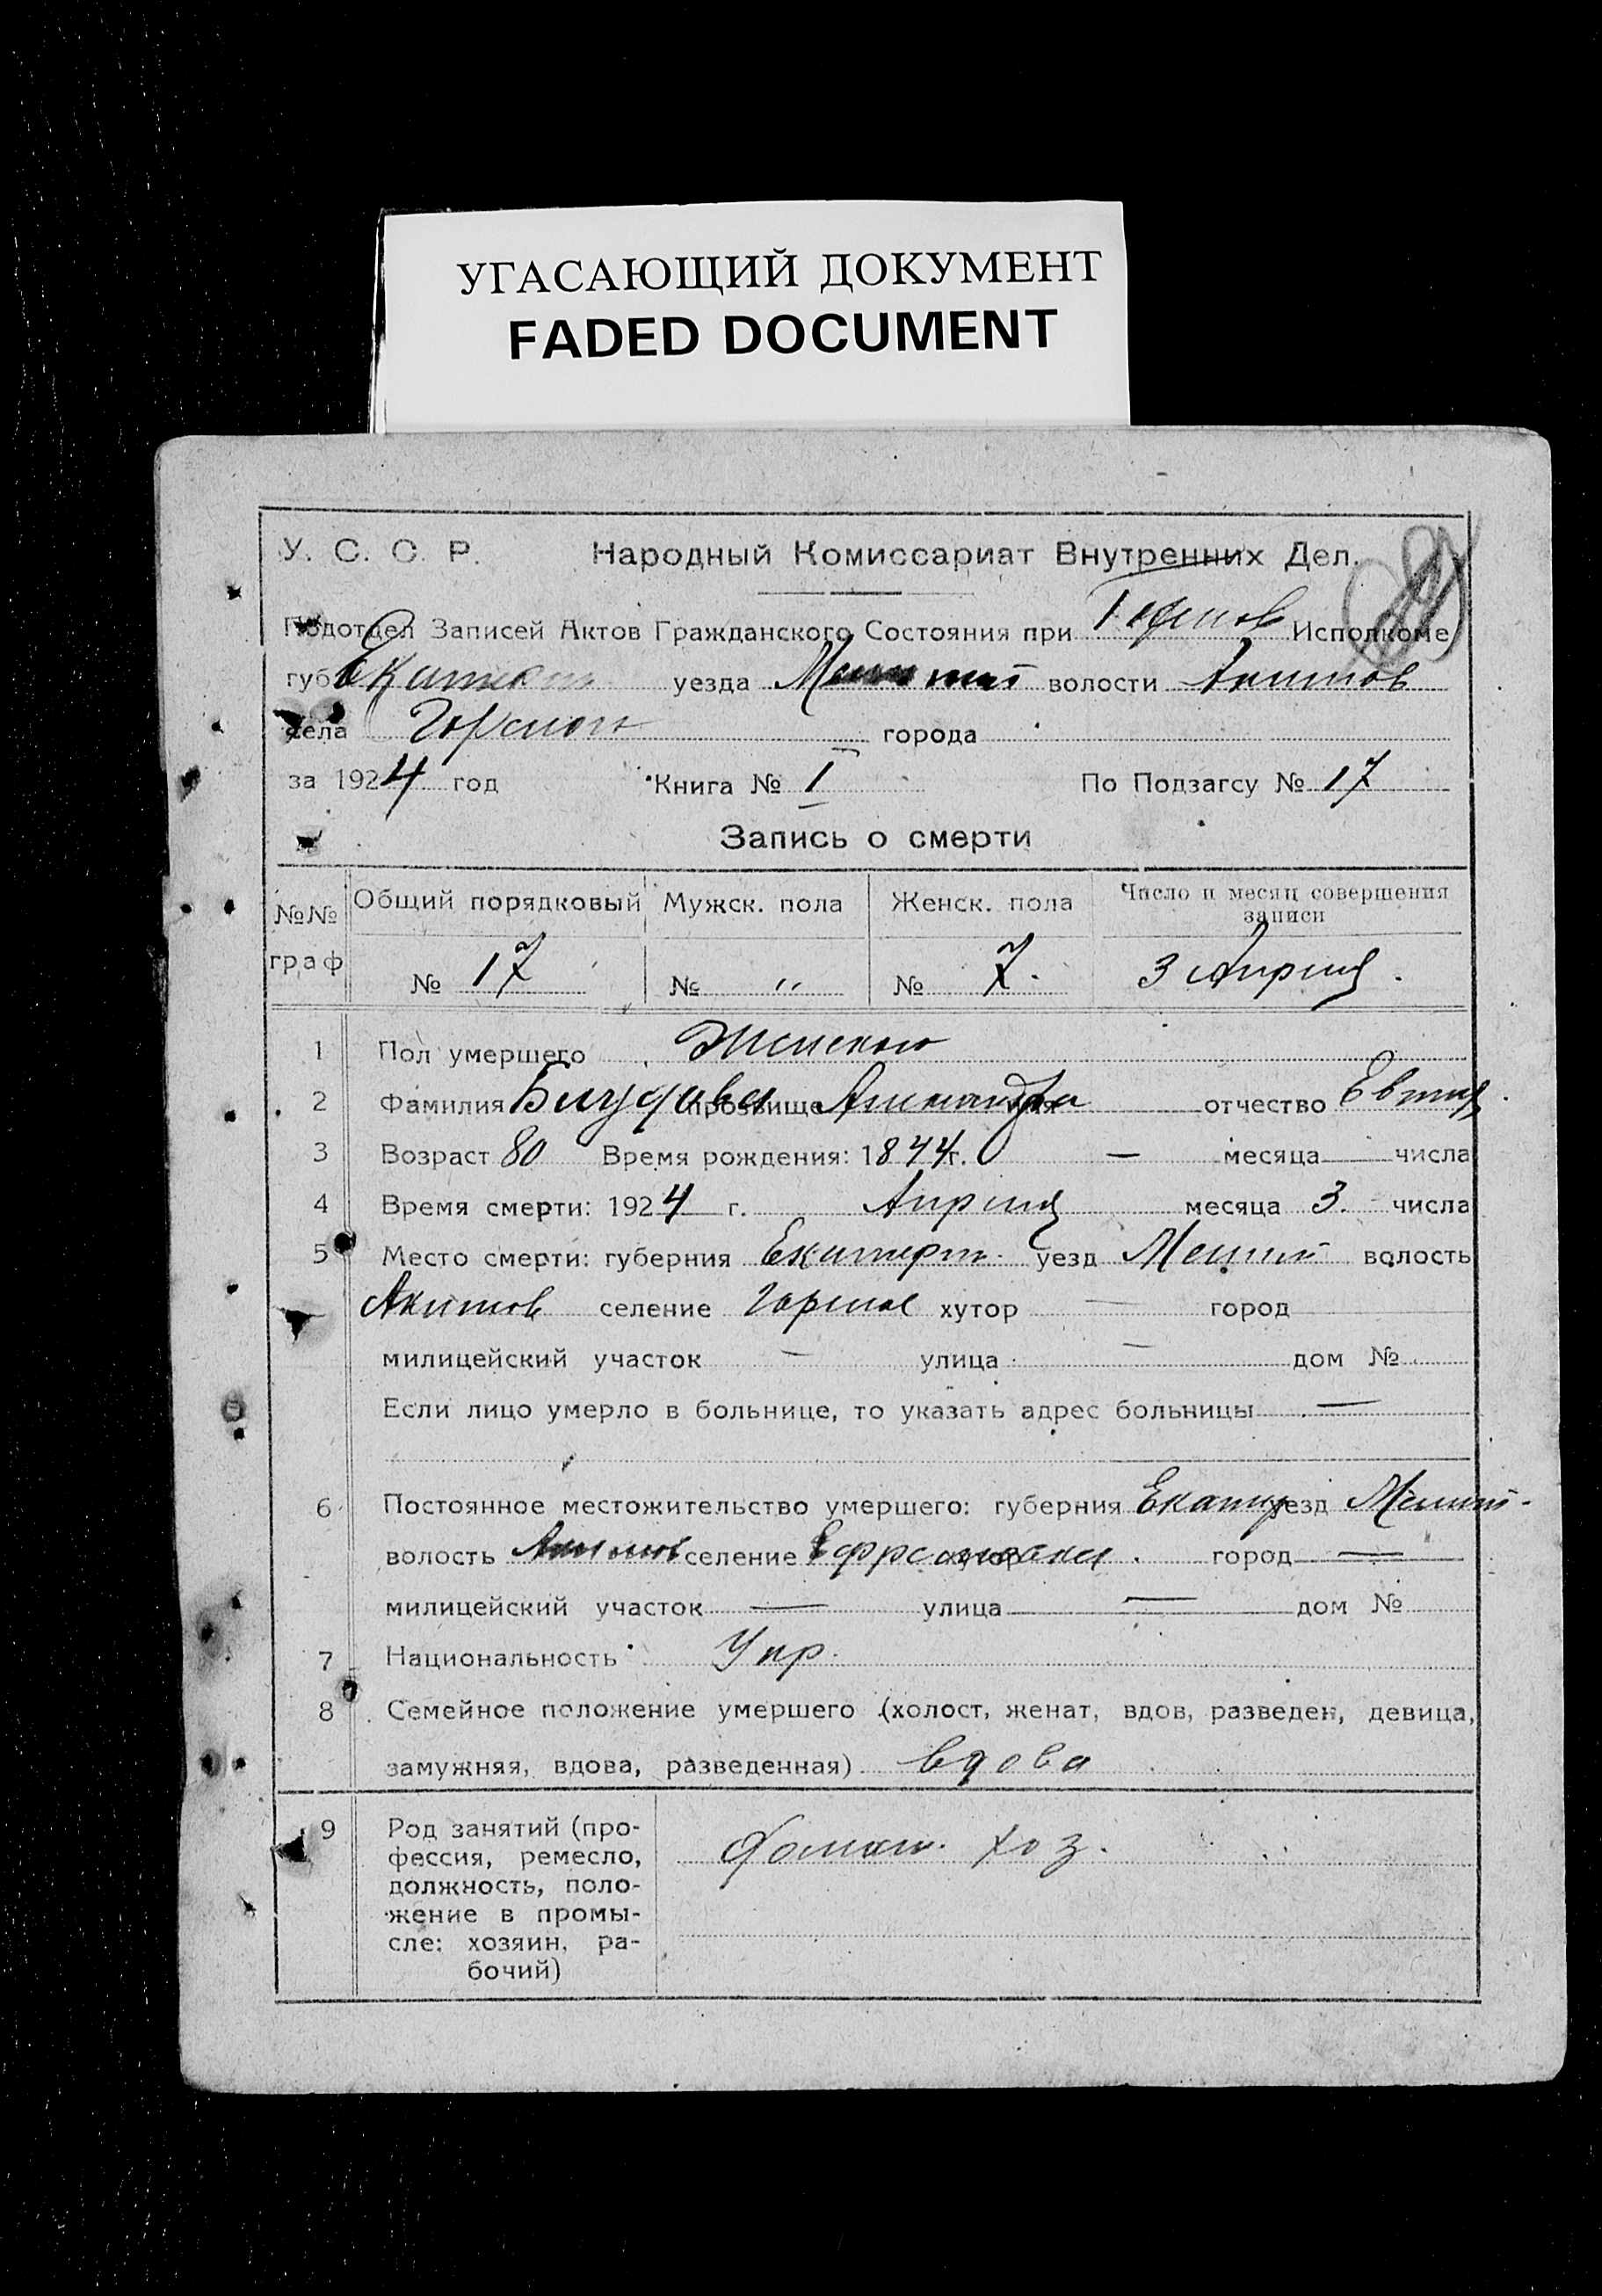 УГАСАЮЩИЙ ДОКУМЕНТ
FADED DOCUMENT
У. С. С. Р. Народный Комиссариат Внутренних Дел.
Подотдел Записей Актов Гражданского Состояния при Исполкоме
губ. уезда волости Акимов
села Горского города
за 1924 год Книга № I По Подзагсу № 17
Запись о смерти
№№ граф Общий порядковый Мужск. пола Женск. пола Число и месяц совершения записи
№ 17 № „ № 7. 3 Апреля.
1 Пол умершего Женского
2 Фамилия прозвище имя Александра отчество
3 Возраст 80 Время рождения: 1844 г. — месяца числа
4 Время смерти: 1924 г. Апреля месяца 3. числа
5 Место смерти: губерния Екатерин. уезд Мелит волость
Акимов селение Горское хутор — город
милицейский участок — улица — дом №
Если лицо умерло в больнице, то указать адрес больницы —
6 Постоянное местожительство умершего: губерния Екатер уезд Мелит-
волость Акимов селение хутор город —
милицейский участок — улица — дом №
7 Национальность Укр.
8 Семейное положение умершего (холост, женат, вдов, разведен, девица,
замужняя, вдова, разведенная) вдова
9 Род занятий (про-
фессия, ремесло, домаш. хоз.
должность, поло-
жение в промы-
сле: хозяин, ра-
бочий)